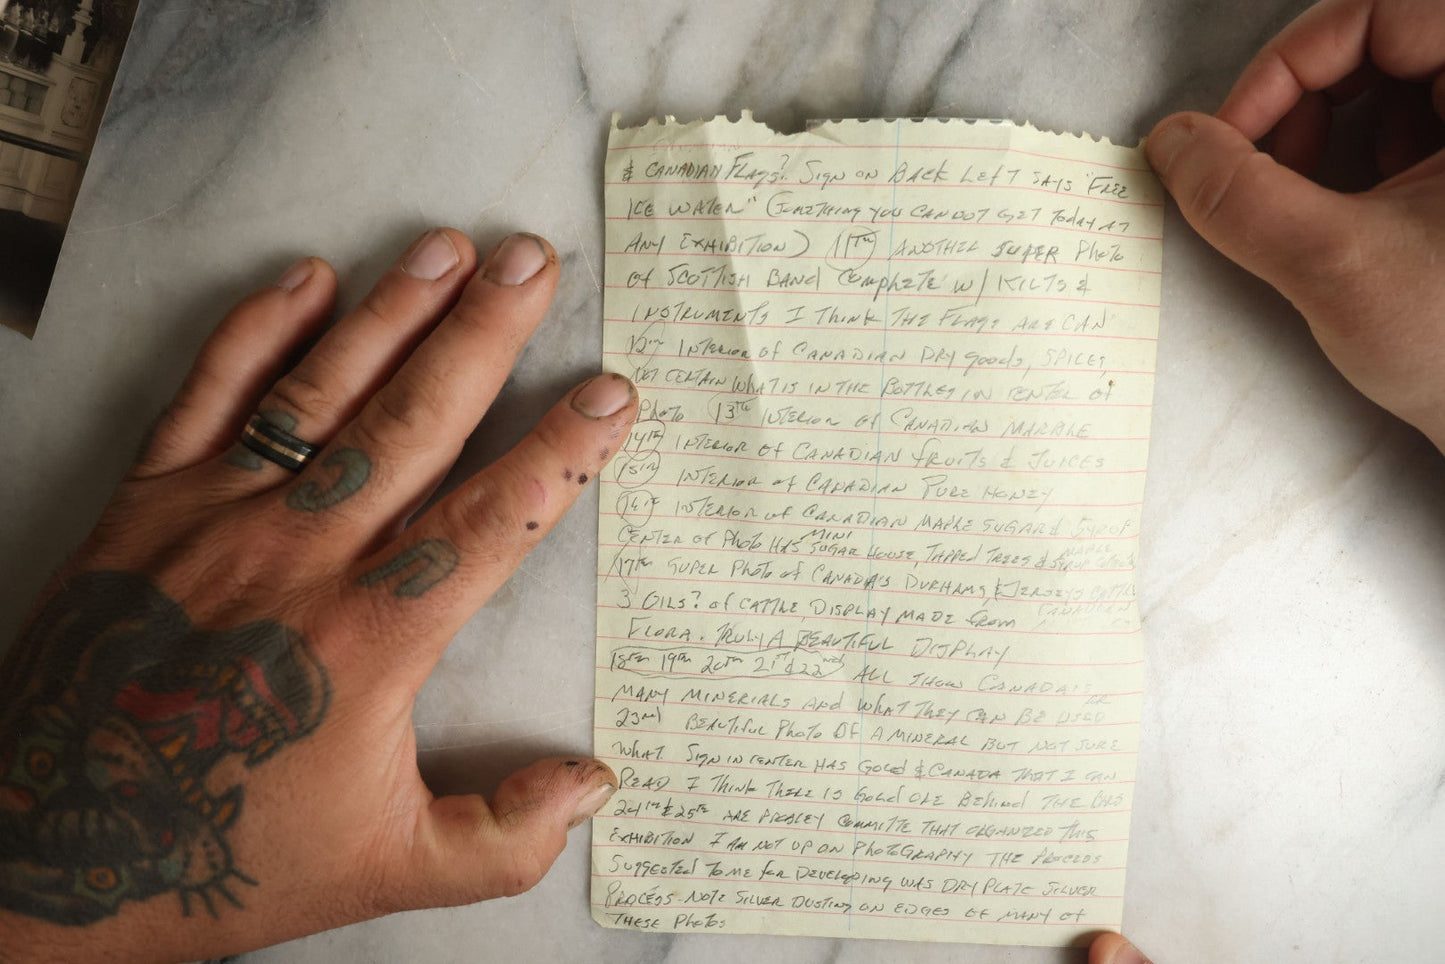 & CANADIAN FLAGS? SIGN ON BACK LEFT SAYS "FREE
ICE WATER" (SOMETHING YOU CANNOT GET TODAY AT
ANY EXHIBITION) 11TH ANOTHER SUPER PHOTO
OF SCOTTISH BAND COMPLETE W/ KILTS &
INSTRUMENTS I THINK THE FLAGS ARE CAN
12TH INTERIOR OF CANADIAN DRY GOODS, SPICES,
NOT CERTAIN WHAT IS IN THE BOTTLES IN CENTER OF
PHOTO 13TH INTERIOR OF CANADIAN MARBLE
14TH INTERIOR OF CANADIAN FRUITS & JUICES
15TH INTERIOR OF CANADIAN PURE HONEY
16TH INTERIOR OF CANADIAN MAPLE SUGAR & SYRUP
CENTER OF PHOTO HAS MINI SUGAR HOUSE, TAPPED TREES & MAPLE SYRUP
17TH SUPER PHOTO OF CANADA'S DURHAMS, & JERSEYS CATTLE
3 OILS? OF CATTLE, DISPLAY MADE FROM CANADIAN
FLORA. TRULY A BEAUTIFUL DISPLAY
18TH 19TH 20TH 21ST & 22ND ALL SHOW CANADA'S
MANY MINERIALS AND WHAT THEY CAN BE USED FOR
23RD BEAUTIFUL PHOTO OF A MINERAL BUT NOT SURE
WHAT SIGN IN CENTER HAS GOLD & CANADA THAT I CAN
READ I THINK THERE IS GOLD ORE BEHIND THE BARS
24TH & 25TH ARE PROBLEY COMMITTE THAT ORGANIZED THIS
EXHIBITION I AM NOT UP ON PHOTOGRAPHY THE PROCESS
SUGGESTED TO ME FOR DEVELOPING WAS DRY PLATE SILVER
PROCESS - NOTE SILVER DUSTING ON EDGES OF MANY OF
THESE PHOTOS